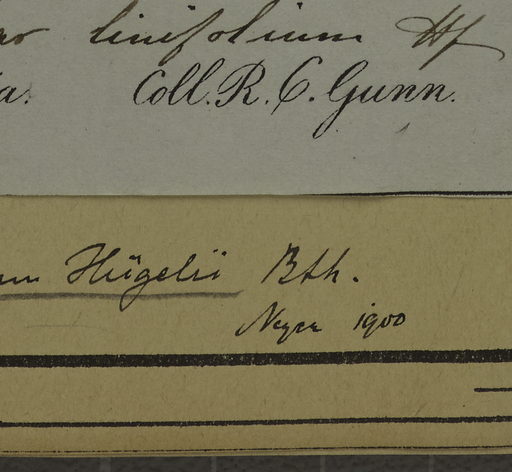 linifolium Hf
a. Coll. R. C. Gunn.
Hügelii Bth.
1900